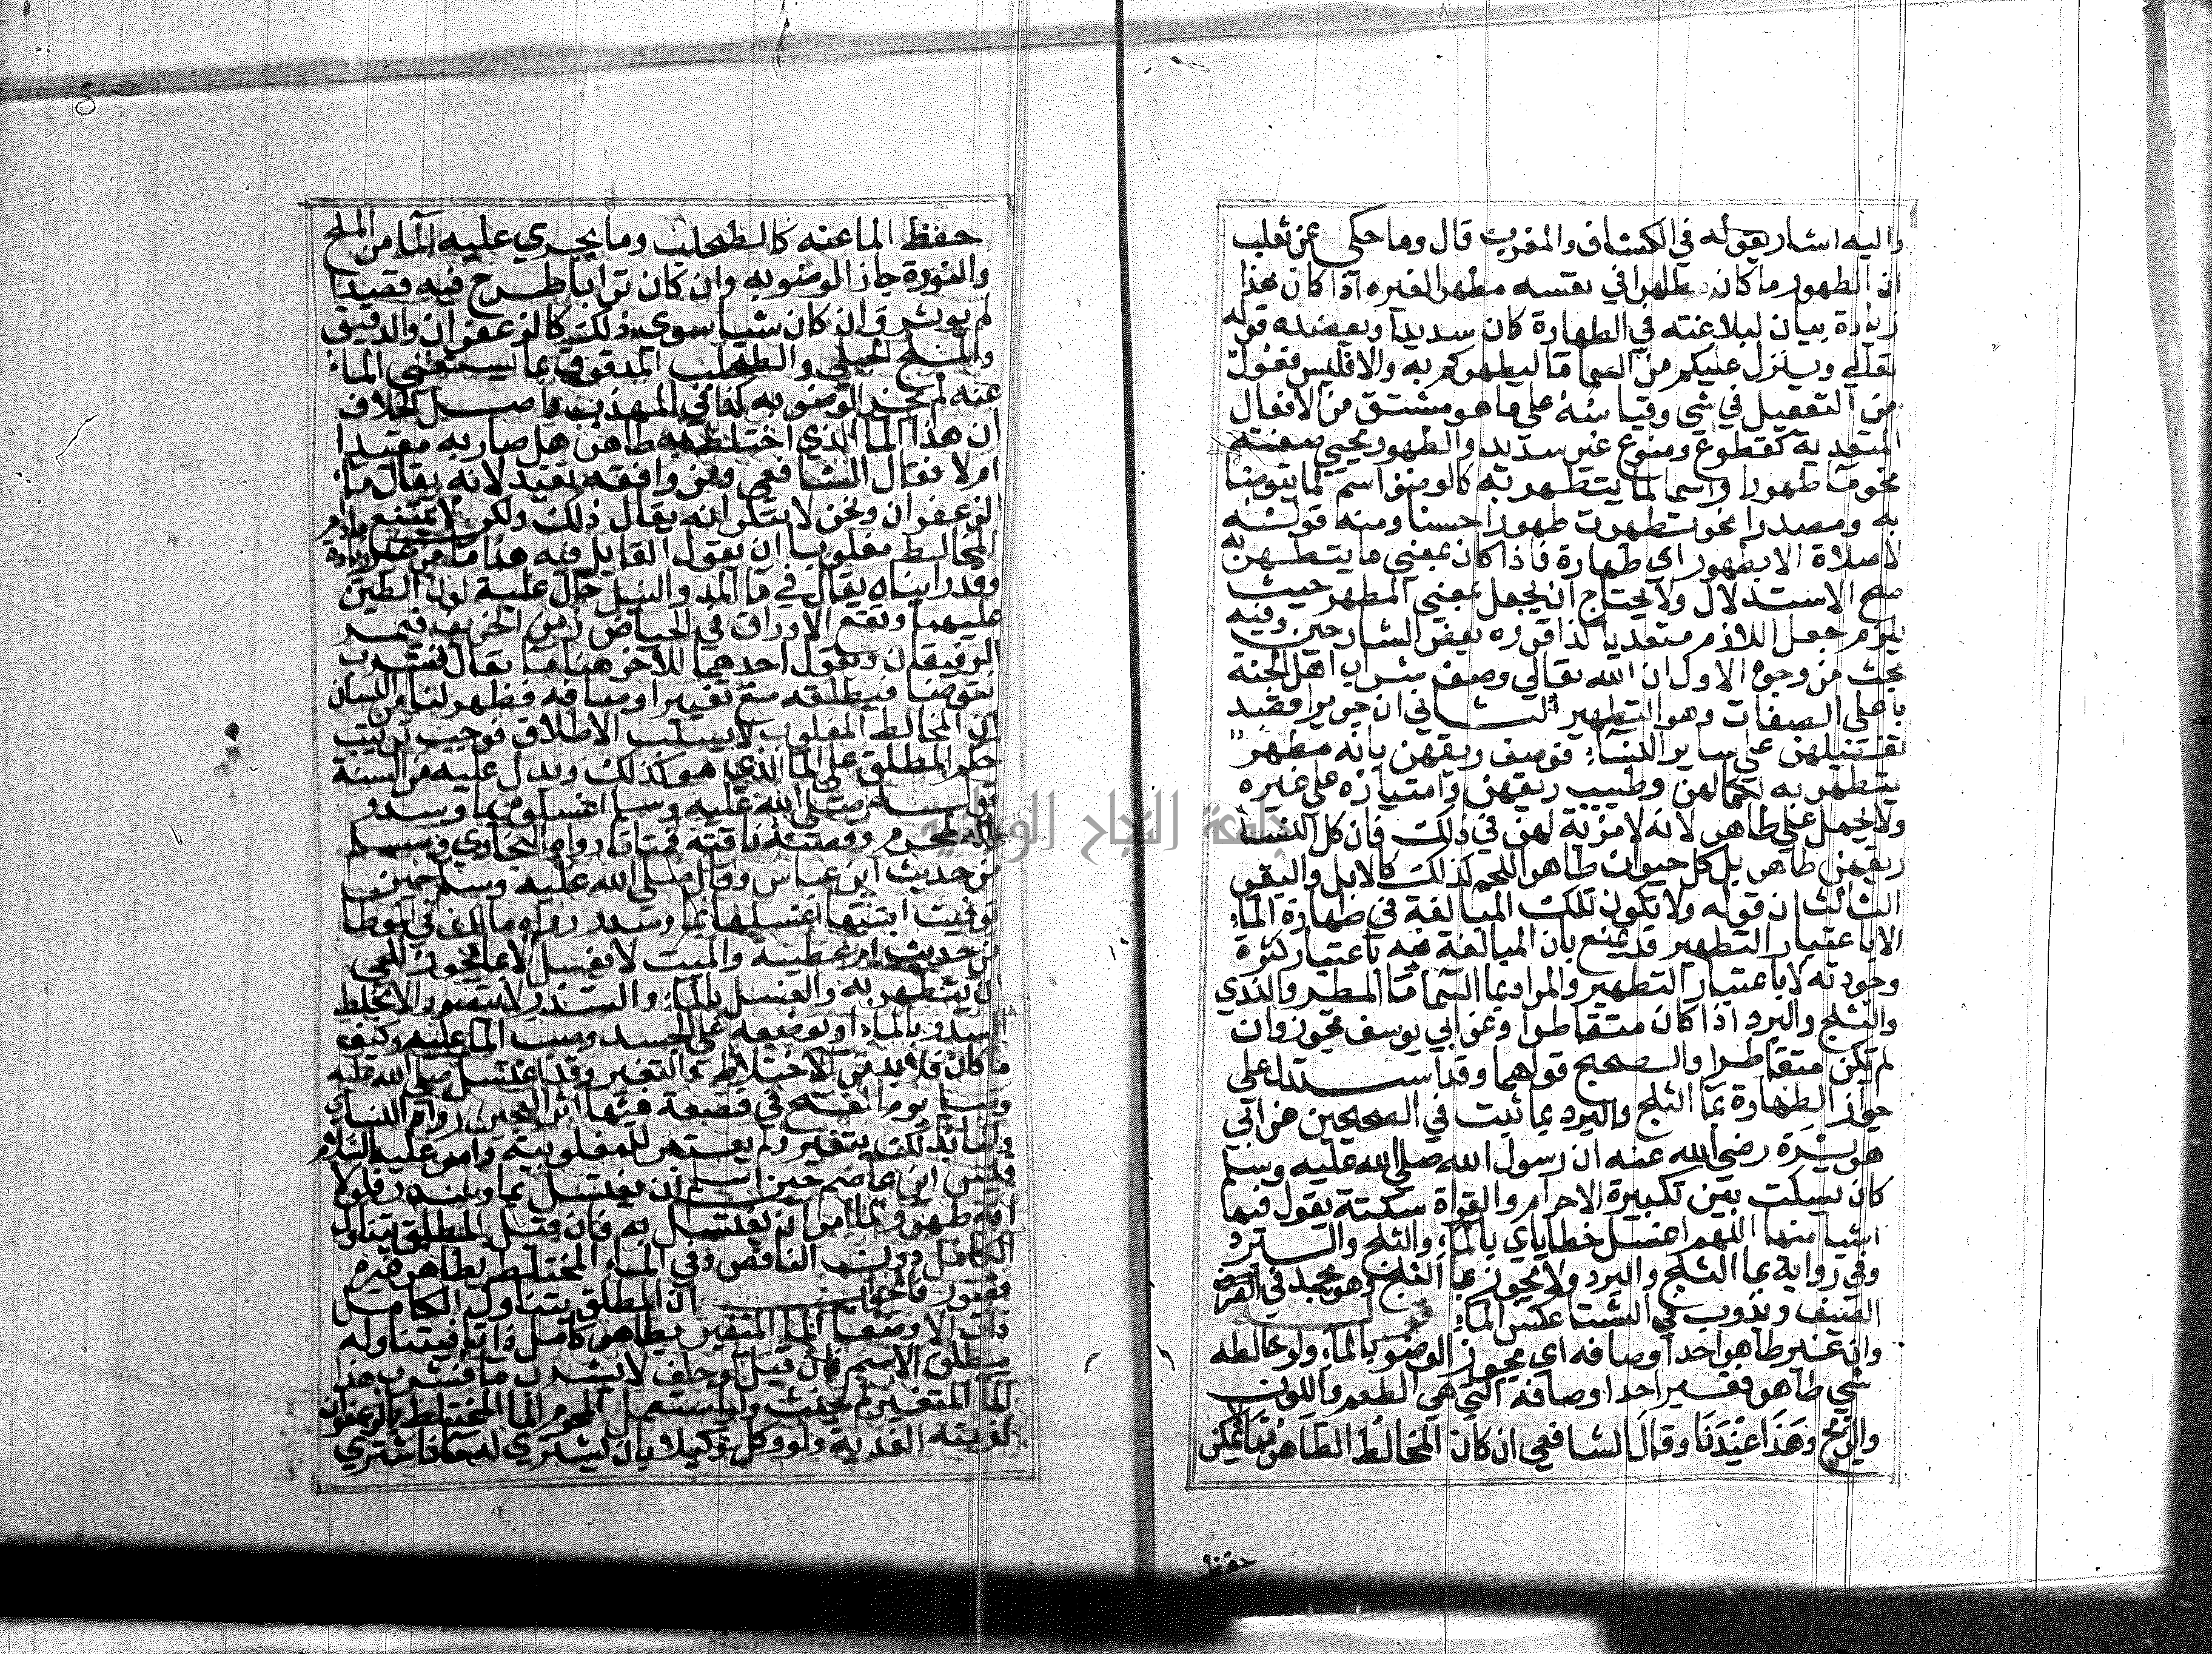 واليه اشار بقوله في الكشاف والمغرب قال وما حكى عن ثعلب
ان الطهور ما كان طاهرا في نفسه مطهرا لغيره اذا كان هذا
زيادة بيان لبلاغته في الطهارة كان سديدا ويعضده قوله
تعالى وينزل عليكم من السما ما ليطهركم به والا فليس فعول
من التفعيل في شي وقياسه على ما هو مشتق من الافعال
المتعدية كقطوع ومنوع غير سديد والطهور يجيي صفة
نحو ما طهورا واسما لما يتطهر به كالوضو اسم لما يتوضا
به ومصدرا نحو تطهرت طهورا حسنا ومنه قوله
لا صلاة الا بطهور اي طهارة فاذا كان بمعنى ما يتطهر به
صح الاستدلال ولا يحتاج ان يجعل بمعنى المطهر حيث
يلزم جعل اللازم متعديا كذا قرره بعض الشارحين وفيه
بحث من وجوه الاول ان الله تعالى وصف شراب اهل الجنة
باعلى الصفات وهو التطهير الثاني ان جريرا قصد
تفضيلهن على ساير النساء فوصف ريقهن بانه مطهر
يتطهر به لكمالهن وطيب ريقهن وامتيازه على غيره
ولا يحمل على طاهر لانه لا مزية لهن في ذلك فان كل النسا
ريقهن طاهر بل كل حيوان طاهر اللحم كذلك كالابل والبقر
الثالث ان قوله ولا تكون تلك المبالغة في طهارة الماء
الا باعتبار التطهير قد يمنع بان المبالغة فيه باعتبار كثرة
وجودته لا باعتبار التطهير والمراد بما السما ما المطر والندي
والثلج والبرد اذا كان متقاطرا وعن ابي يوسف يجوز وان
لم يكن متقاطرا والصحيح قولهما وقد استدل على
جواز الطهارة بما الثلج والبرد بما ثبت في الصحيحين عن ابي
هريرة رضي الله عنه ان رسول الله صلى الله عليه وسلم
كان يسكت بين تكبيرة الاحرام والقراة سكتة يقول فيها
اشيا منها اللهم اغسل خطاياي بالماء والثلج والبرد
وفي رواية بما الثلج والبرد ولا يجوز بما الملح وهو يجمد في
الصيف ويذوب في الشتا عكس الماء
وان غير طاهر احد اوصافه اي يجوز الوضو بالماء ولو خالطه
شي طاهر فغير احد اوصافه التي هي الطعم واللون
والريح وهذا عندنا وقال الشافعي ان كان المخالط الطاهر مما لا يمكن
حفظ
حفظ الما عنه كالطحلب وما يجري عليه الما من الملح
والنورة جاز الوضو به وان كان ترابا طرح فيه قصدا
لم يوثر وان كان شيا سوى ذلك كالزعفران والدقيق
والملح الجبلي والطحلب المدقوق مما يستغني الماء
عنه لم يجز الوضو به كذا في المهذب واصل الخلاف
ان هذا الما الذي اختلط به طاهر هل صار به مقيدا
ام لا فقال الشافعي ومن وافقه تقيد لانه يقال ما
الزعفران ونحن لا ننكر انه يقال ذلك ولكن لا يمتنع ما دام
المخالط مغلوبا ان يقول القايل فيه هذا ما من غير زيادة
وقد رايناه يقال في ما المد والنيل حال غلبة لون الطين
عليهما وتقع الاوراق في الحياض زمن الخريف فيمر
الرفيقان ويقول احدهما للاخر هنا ما تعال نشرب
نتوضا فيطلقه مع تغيير اوصافه فظهر لنا من اللسان
ان المخالط المغلوب لا يسلب الاطلاق فوجب ترتيب
حكم المطلق على الما الذي هو كذلك ويدل عليه من السنة
قوله صلى الله عليه وسلم اغسلوه بما وسدر
قاله لمحرم وقصته ناقته فمات رواه البخاري ومسلم
من حديث ابن عباس وقال صلى الله عليه وسلم حين
توفيت ابنته اغسلنها بما وسدر رواه مالك في الموطا
من حديث ام عطية والميت لا يغسل الا بما يجوز للحي
ان يتطهر به والغسل بالماء والسدر لا يتصور الا بخلط
السدر بالماء او بوضعه على الجسد وصب الما عليه وكيف
ما كان فلا بد من الاختلاط والتغير وقد اغتسل صلى الله عليه
وسلم يوم الفتح في قصعة فيها اثر العجين رواه النسائي
والما بذلك يتغير ولم يعتبر للمغلوبية وامر عليه السلام
قيس ابن عاصم حين اسلم ان يغتسل بما وسدر فلولا
انه طهور لما امر ان يغتسل به فان قيل المطلق يتناول
الكامل دون الناقص وفي الماء المختلط بطاهر غيره
قصور فالجواب ان المطلق يتناول الكامل
ذات الا وصفا الما المتغير بطاهر كامل ذاتا فيتناوله
مطلق الاسم فان قيل لو حلف لا يشرب ما فشرب هذا
الما المتغير لم يحنث ولو استعمل المحرم الما المختلط بالزعفران
لزمته الفدية ولو وكل وكيلا بان يشتري له ما فاشترى